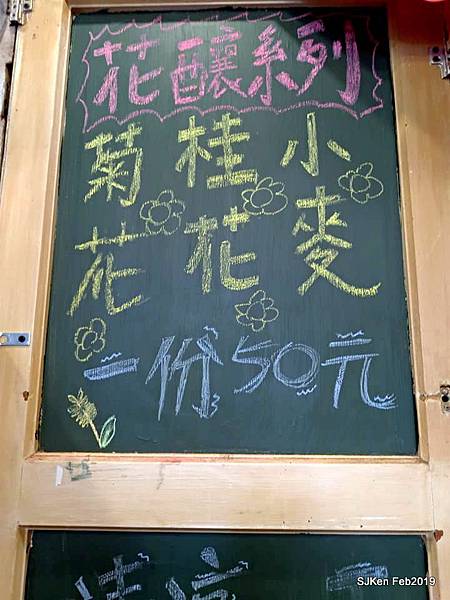 花釀系列
小麥
桂花
菊花
一份50元
SJKen Feb2019